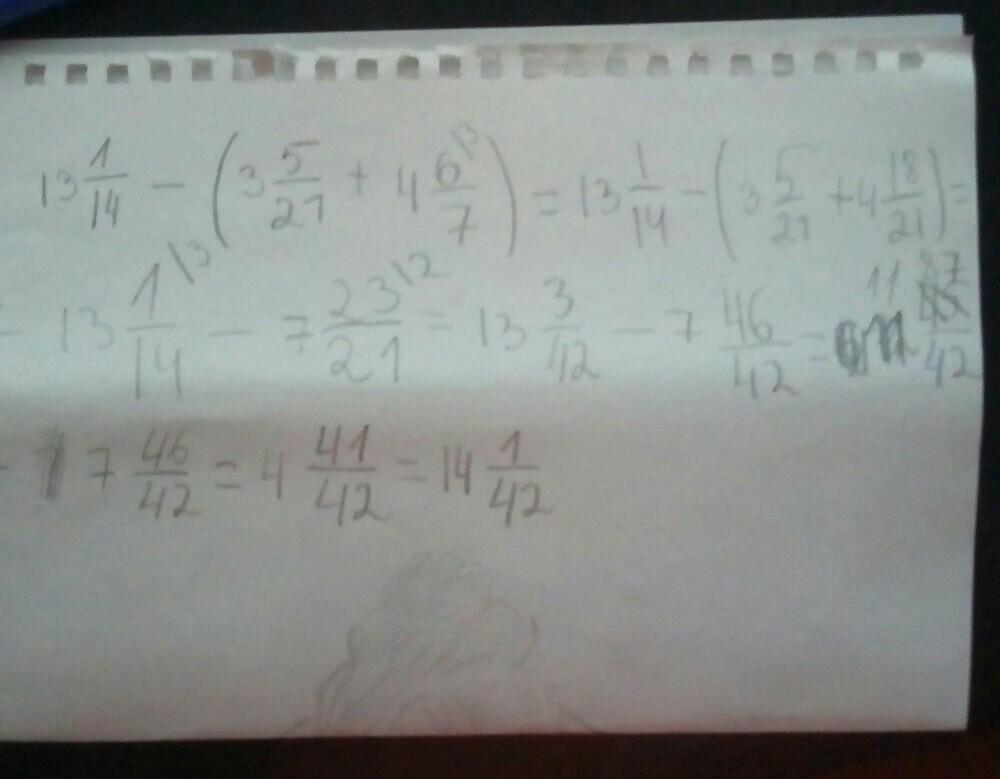 13 1/14 − (3 5/21 + 4 6/7 \3) = 13 1/14 − (3 5/21 + 4 18/21) =
− 13 1/14 \3 − 7 23/21 \2 = 13 3/42 − 7 46/42 = 11 87/42
- 7 46/42 = 4 41/42 = 14 1/42